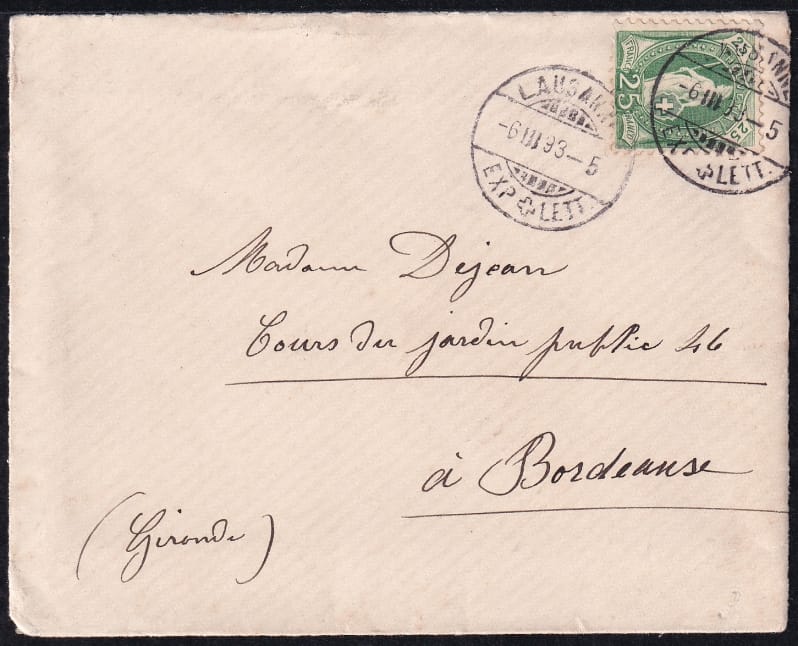 LAUSANNE
-6 III 93-5
EXP LETT.
FRANCO
25
25
-6 III 93-5
EXP LETT.
Madame Dejean
Cours du jardin public 46
à Bordeaux
(Gironde)